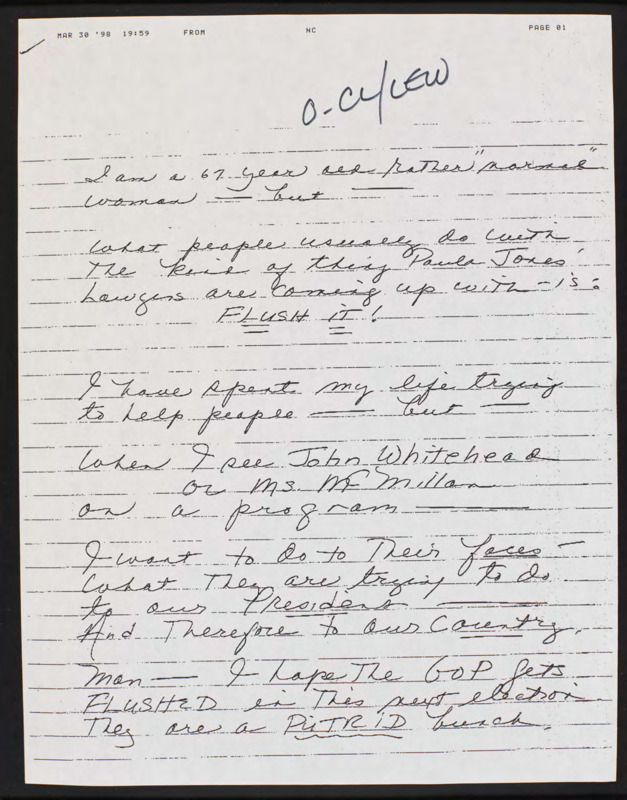 MAR 30 '98 19:59 FROM NC PAGE 01
O-CL/LEW
I am a 67 year old rather "normal"
woman — but —
What people usually do with
the kind of thing Paula Jones'
Lawyers are coming up with - is:
FLUSH IT!
I have spent my life trying
to help people — but —
When I see John Whitehead
or Ms. McMillan
on a program —
I want to do to Their faces -
What They are trying to do
to our President —
And Therefore to our Country.
Man — I hope The GOP gets
FLUSHED in This next election
They are a PUTRID bunch.